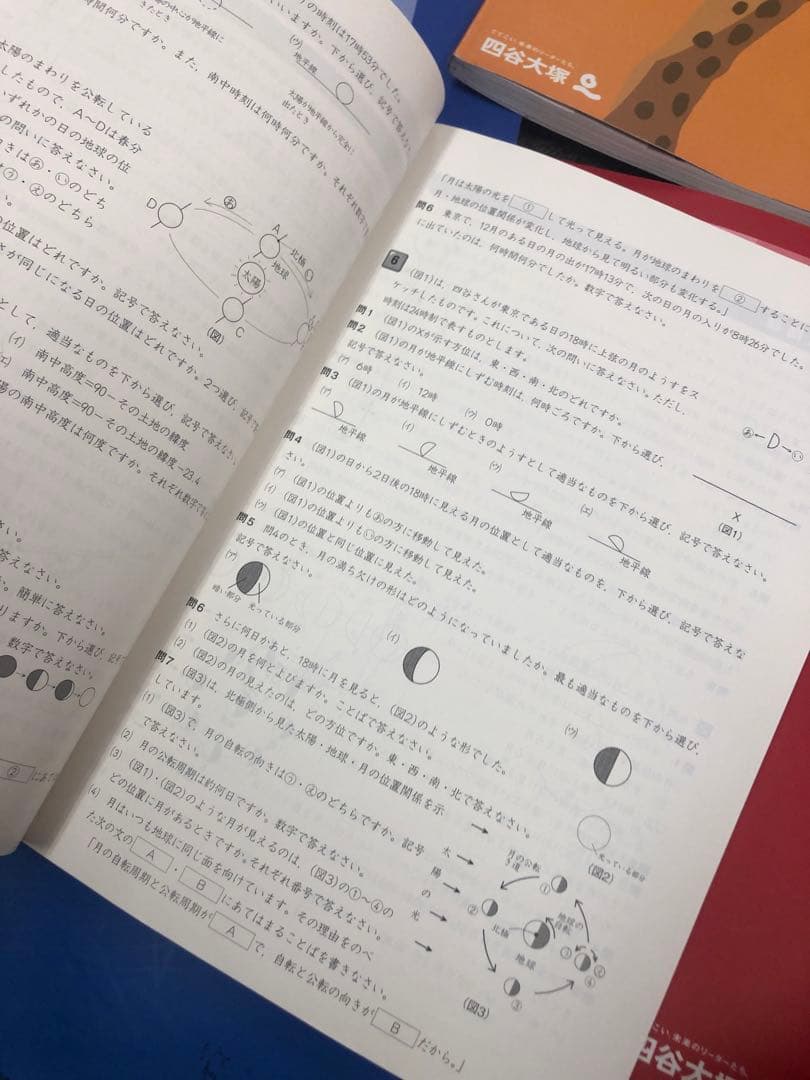 の時刻は17時53分でした。
いいますか。下から選び、記号で答えなさい。
の中心が地平線に
きたとき
(ウ)
地平線
太陽が地平線から完全に
出たとき
時間何分ですか。また、南中時刻は何時何分ですか。それぞれ数字で
太陽のまわりを公転している
したもので、A〜Dは春分
いずれかの日の地球の位
の問いに答えなさい。
きは㋐・㋑のどち
は㋒・㋓のどちら
D
あ
A
北極
地球
太陽
い
C
(図)
位置はどれですか。記号で答えなさい。
さが同じになる日の位置はどれですか。2つ選び、記号で
として、適当なものを下から選び、記号で答えなさい。
(イ) 南中高度=90−その土地の緯度
(エ) 南中高度=90−その土地の緯度−23.4
陽の南中高度は何度ですか。それぞれ数字で答
さい。
答えなさい。
。簡単に答えなさい。
りますか。下から選び、記号
数字で答えなさい。
②
四谷大塚
「月は太陽の光を ① して光って見える。月が地球のまわりを ② することに
月・地球の位置関係が変化し、地球から見て明るい部分も変化する。」
問6 東京で、12月のある日の月の出が17時13分で、次の日の月の入りが8時26分でした。
に出ていたのは、何時間何分でしたか。数字で答えなさい。
6
(図1)は、四谷さんが東京である日の18時に上弦の月のようすをス
ケッチしたものです。これについて、次の問いに答えなさい。ただし、
時刻は24時制で表すものとします。
問1 (図1)のXが示す方位は、東・西・南・北のどれですか。
問2 (図1)の月が地平線にしずむ時刻は、何時ごろですか。下から選び、
記号で答えなさい。
(ア) 6時 (イ) 12時 (ウ) 0時
あ←D→い
X
(図1)
問3 (図1)の月が地平線にしずむときのようすとして適当なものを下から選び、記号で答えなさい。
(ア) (イ) (ウ) (エ)
地平線 地平線 地平線 地平線
問4 (図1)の日から2日後の18時に見える月の位置として適当なものを、下から選び、記号で答えな
さい。
(ア) (図1)の位置よりもあの方に移動して見えた。
(イ) (図1)の位置よりもいの方に移動して見えた。
(ウ) (図1)の位置と同じ位置に見えた。
問5 問4のとき、月の満ち欠けの形はどのようになっていましたか。最も適当なものを下から選び、
記号で答えなさい。
(ア) (イ) (ウ)
暗い部分 光っている部分
問6 さらに何日かあと、18時に月を見ると、(図2)のような形でした。
(1) (図2)の月を何とよびますか。ことばで答えなさい。
(2) (図2)の月の見えたのは、どの方位ですか。東・西・南・北で答えなさい。
光っている部分
(図2)
問7 (図3)は、北極側から見た太陽・地球・月の位置関係を示
しています。
(1) (図3)で、月の自転の向きは㋒・㋓のどちらですか。記号
で答えなさい。
(2) 月の公転周期は約何日ですか。数字で答えなさい。
(3) (図1)・(図2)のような月が見えるのは、(図3)の①〜④の
どの位置に月があるときですか。それぞれ番号で答えなさい。
(4) 月はいつも地球に同じ面を向けています。その理由をのべ
た次の文の A ・ B にあてはまることばを書きなさい。
「月の自転周期と公転周期が A で、自転と公転の向きが B だから。」
太
陽
の
光
月の公転
①
②
北極
地球
地球の
自転
③
④
(図3)
四谷大塚